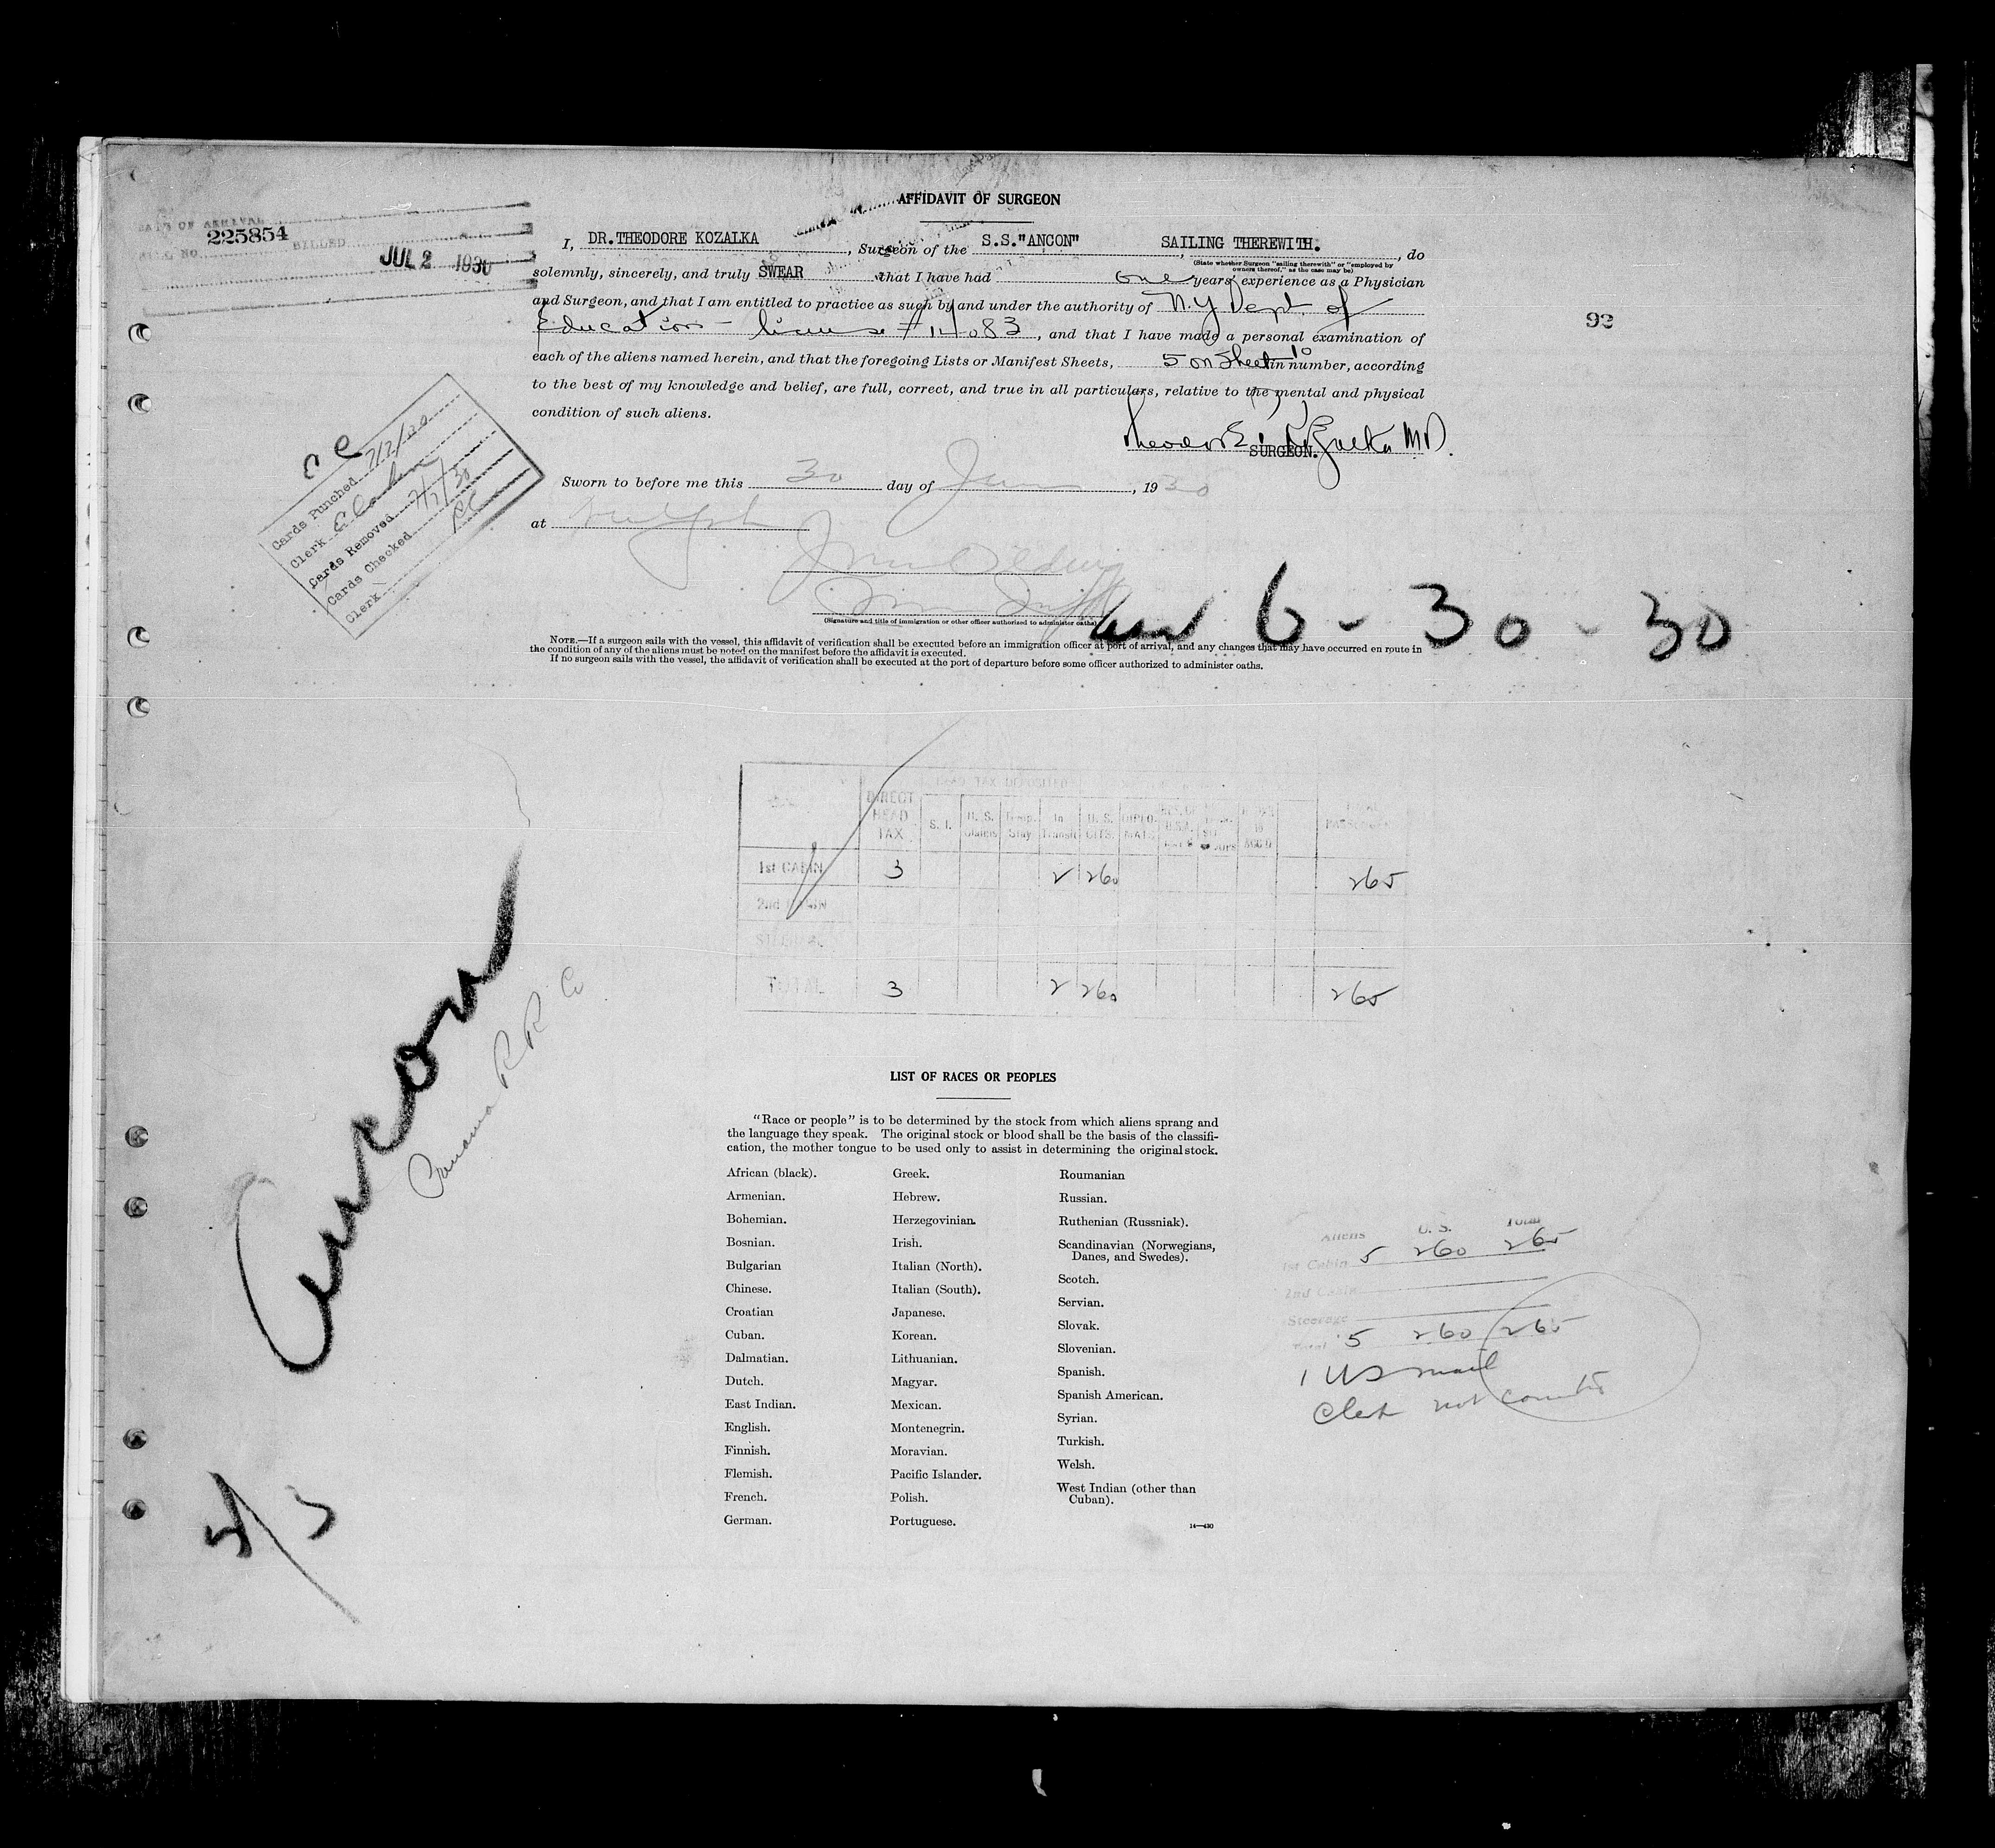 AFFIDAVIT OF SURGEON
DATE OF ARRIVAL
225854 BILLED
JUL 2 1930
I, DR. THEODORE KOZALKA, Surgeon of the S.S."ANCON", SAILING THEREWITH., do
(State whether Surgeon "sailing therewith" or "employed by
owners thereof," as the case may be)
solemnly, sincerely, and truly SWEAR that I have had one years' experience as a Physician
and Surgeon, and that I am entitled to practice as such by and under the authority of N.Y Dept. of
Education - license # 14083, and that I have made a personal examination of
each of the aliens named herein, and that the foregoing Lists or Manifest Sheets, 5 on Sheet 10 in number, according
to the best of my knowledge and belief, are full, correct, and true in all particulars, relative to the mental and physical
condition of such aliens.
M.D.
SURGEON.
92
Sworn to before me this 30 day of June, 1930
at
(Signature and title of immigration or other officer authorized to administer oaths)
6-30-30
NOTE.—If a surgeon sails with the vessel, this affidavit of verification shall be executed before an immigration officer at port of arrival, and any changes that may have occurred en route in
the condition of any of the aliens must be noted on the manifest before the affidavit is executed.
If no surgeon sails with the vessel, the affidavit of verification shall be executed at the port of departure before some officer authorized to administer oaths.
Cards Punched 7/2/30
Clerk
Cards Removed 7/2/30
Cards Checked
Clerk
HEAD TAX DEPOSITED
DIRECT HEAD TAX S. I. U. S. Temp. Stay In Transit U. S. CITS. DIPLO-MATS
1st CABIN 3 2 260 265
2nd CABIN
TOTAL 3 2 260 265
Ancon
Panama R R Co
5/3
LIST OF RACES OR PEOPLES
"Race or people" is to be determined by the stock from which aliens sprang and
the language they speak. The original stock or blood shall be the basis of the classifi-
cation, the mother tongue to be used only to assist in determining the original stock.
African (black).
Armenian.
Bohemian.
Bosnian.
Bulgarian
Chinese.
Croatian
Cuban.
Dalmatian.
Dutch.
East Indian.
English.
Finnish.
Flemish.
French.
German.
Greek.
Hebrew.
Herzegovinian.
Irish.
Italian (North).
Italian (South).
Japanese.
Korean.
Lithuanian.
Magyar.
Mexican.
Montenegrin.
Moravian.
Pacific Islander.
Polish.
Portuguese.
Roumanian
Russian.
Ruthenian (Russniak).
Scandinavian (Norwegians,
Danes, and Swedes).
Scotch.
Servian.
Slovak.
Slovenian.
Spanish.
Spanish American.
Syrian.
Turkish.
Welsh.
West Indian (other than
Cuban).
14—430
Aliens U. S. Total
1st Cabin 5 260 265
2nd Cabin
Steerage
Total 5 260 265
1 US mail
Clerk not counted